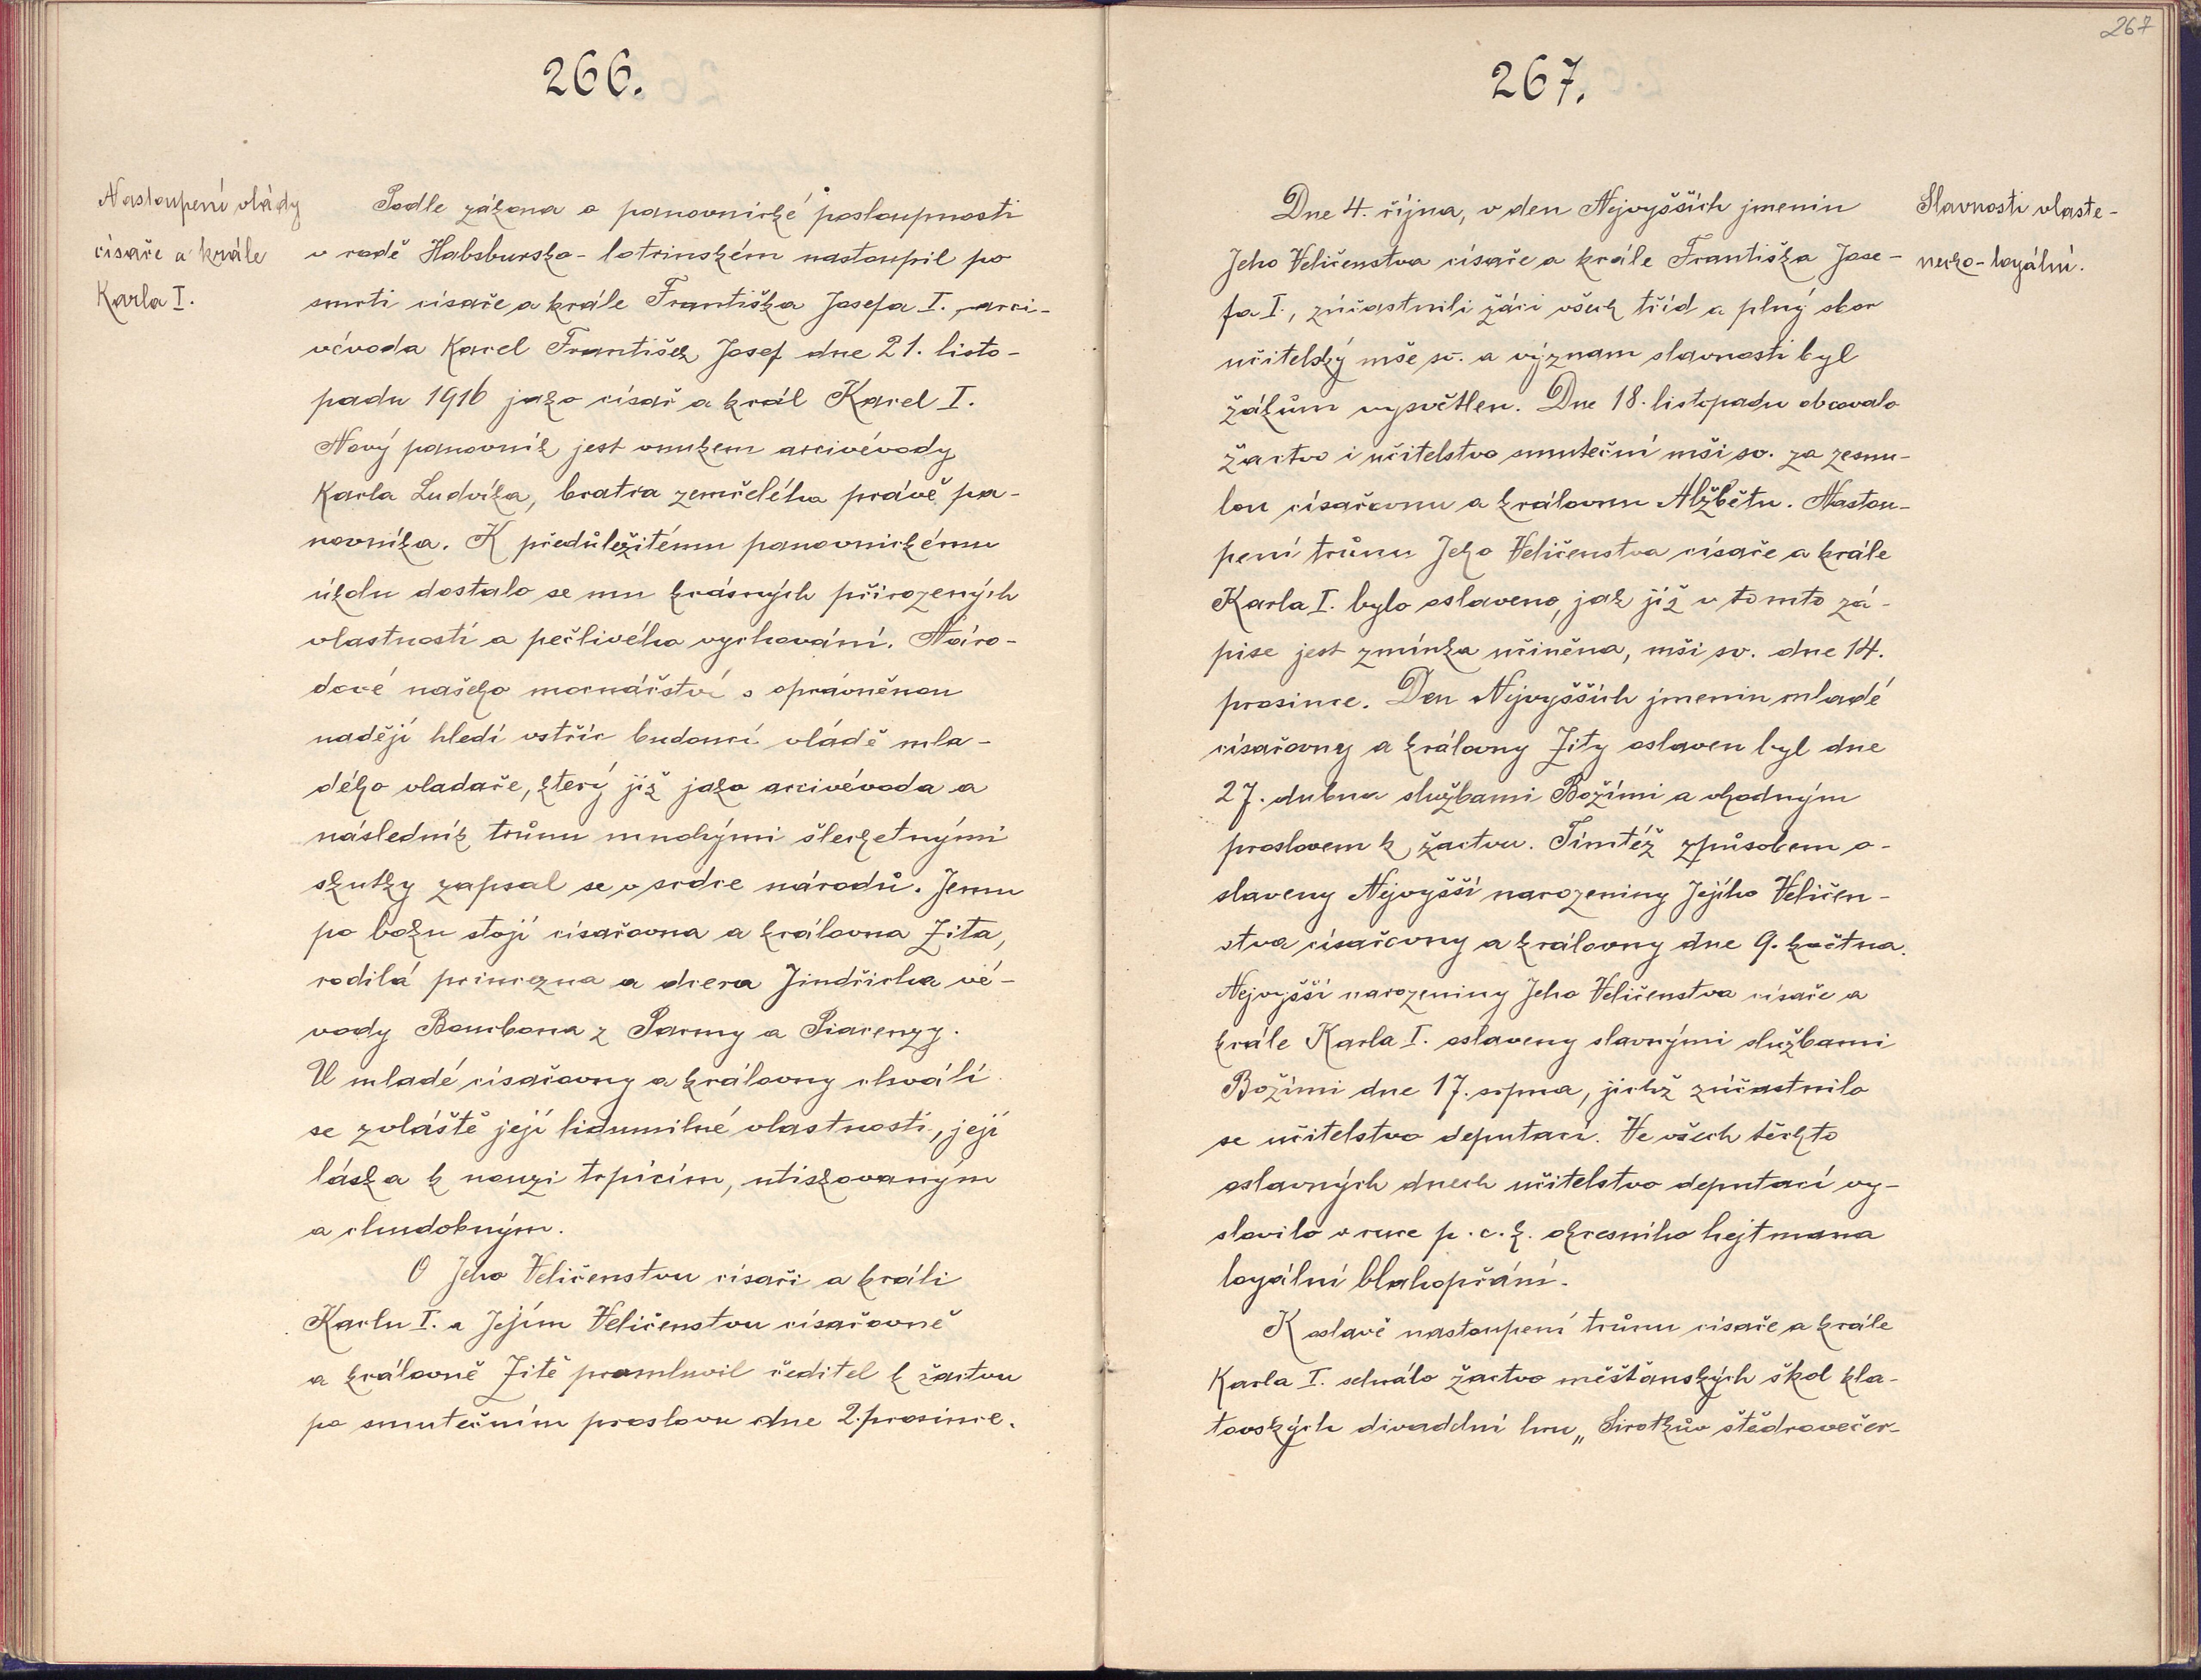 266.
Nastoupení vlády
císaře a krále
Karla I.
Podle zákona o panovnické posloupnosti
v rodě Habsbursko-lotrinském nastoupil po
smrti císaře a krále Františka Josefa I., arci-
vévoda Karel František Josef dne 21. listo-
padu 1916 jako císař a král Karel I.
Nový panovník jest vnukem arcivévody
Karla Ludvíka, bratra zemřelého právě pa-
novníka. K předůležitému panovnickému
úkolu dostalo se mu krásných přirozených
vlastností a pečlivého vychování. Náro-
dové našeho mocnářství s oprávněnou
nadějí hledí vstříc budoucí vládě mla-
dého vladaře, který již jako arcivévoda a
následník trůnu mnohými šlechetnými
skutky zapsal se v srdce národů. Jemu
po boku stojí císařovna a královna Zita,
rodilá princezna a dcera Jindřicha vé-
vody Bourbona z Parmy a Piacenzy.
U mladé císařovny a královny chválí
se zvláště její lidumilné vlastnosti, její
láska k nouzi trpícím, utiskovaným
a chudobným.
O Jeho Veličenstvu císaři a králi
Karlu I. a Jejím Veličenstvu císařovně
a královně Zitě promluvil ředitel k žactvu
po smutečním proslovu dne 2. prosince.
267
267.
Slavnosti vlaste-
necko-loyální.
Dne 4. října, v den Nejvyšších jmenin
Jeho Veličenstva císaře a krále Františka Jose-
fa I., zúčastnili žáci všech tříd a plný sbor
učitelský mše sv. a význam slavnosti byl
žákům vysvětlen. Dne 18. listopadu obcovalo
žactvo i učitelstvo smuteční mši sv. za zesnu-
lou císařovnu a královnu Alžbětu. Nastou-
pení trůnu Jeho Veličenstva císaře a krále
Karla I. bylo oslaveno, jak již v tomto zá-
pise jest zmínka učiněna, mší sv. dne 14.
prosince. Den Nejvyšších jmenin mladé
císařovny a královny Zity oslaven byl dne
27. dubna službami Božími a vhodným
proslovem k žactvu. Tímtéž způsobem o-
slaveny Nejvyšší narozeniny Jejího Veličen-
stva císařovny a královny dne 9. května.
Nejvyšší narozeniny Jeho Veličenstva císaře a
krále Karla I. oslaveny slavnými službami
Božími dne 17. srpna, jichž zúčastnilo
se učitelstvo deputací. Ve všech těchto
oslavných dnech učitelstvo deputací vy-
slovilo v ruce p. c. k. okresního hejtmana
loyální blahopřání.
K oslavě nastoupení trůnu císaře a krále
Karla I. sehrálo žactvo měšťanských škol kla-
tovských divadelní hru „Sirotkův štědrovečer-